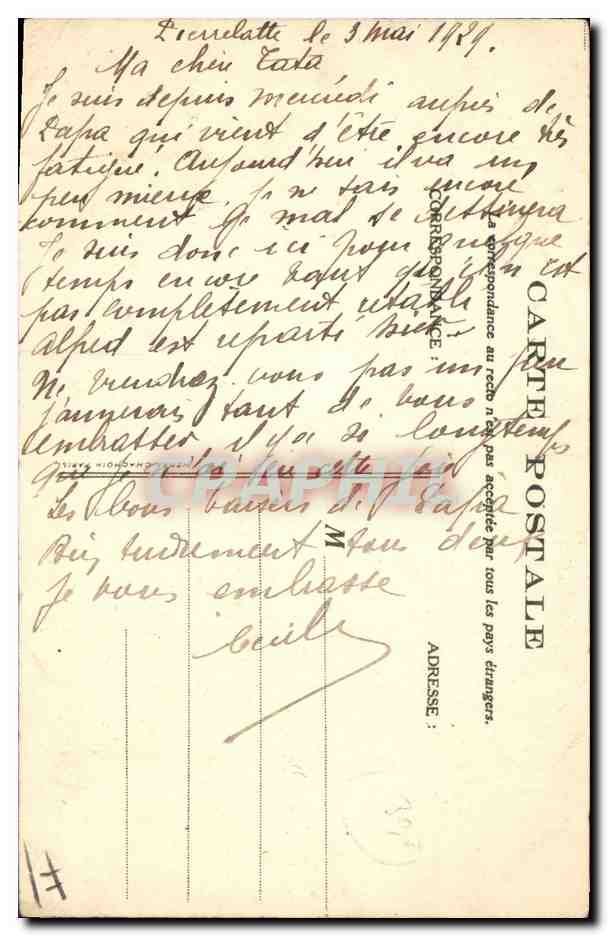 Pierrelatte le 3 mai 1929.
Ma chère Tata
Je suis depuis mercredi auprès de
Papa qui vient d'être encore très
fatigué. Aujourd'hui il va un
peu mieux, je ne sais encore
comment ce mal se dessinera
Je suis donc ici pour quelque
temps encore tant qu'il n'est
pas complètement rétabli
alfred est reparti hier.
Ne viendrez vous pas un peu
j'aimerais tant de vous
embrasser il y a si longtemps
que je
Les bons baisers de Papa
Bien tendrement tous deux
Je vous embrasse
Cécile
CARTE POSTALE
La correspondance au recto n'est pas acceptée par tous les pays étrangers.
CORRESPONDANCE :
ADRESSE :
M
CHACHOIN PARIS
CARAPHIL
H